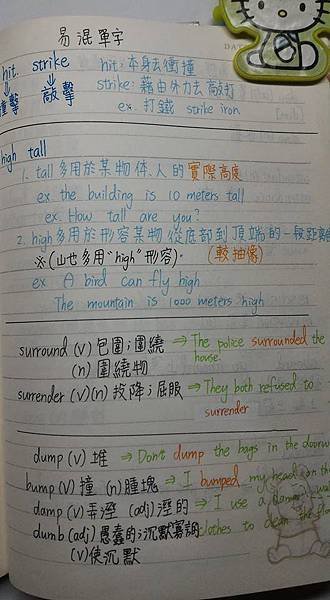 易混單字
hit. strike hit:本身去衝撞
撞擊 敲擊 strike:藉由外力去敲打
ex. 打鐵 strike iron
high tall
1. tall 多用於某物体、人的實際高度
ex. the building is 10 meters tall
ex. How tall are you?
2. high 多用於形容某物從底部到頂端的一段距離
※(山也多用"high"形容)。 (較抽像)
ex A bird can fly high
The mountain is 1000 meters high
surround (v) 包圍;圍繞 ⇒ The police surrounded the
(n) 圍繞物 house.
surrender (v)(n) 投降;屈服 ⇒ They both refused to
surrender
dump (v) 堆 ⇒ Don't dump the bags in the
bump (v) 撞 (n) 腫塊 ⇒ I bumped my head on the
damp (v) 弄溼 (adj) 溼的 ⇒ I use a damp
dumb (adj) 愚蠢的;沉默寡詞 clothes to clean the
(v) 使沉默